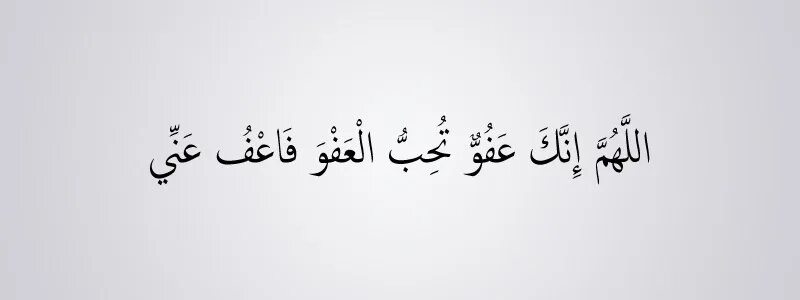 اللَّهُمَّ إِنَّكَ عَفُوٌّ تُحِبُّ الْعَفْوَ فَاعْفُ عَنِّي